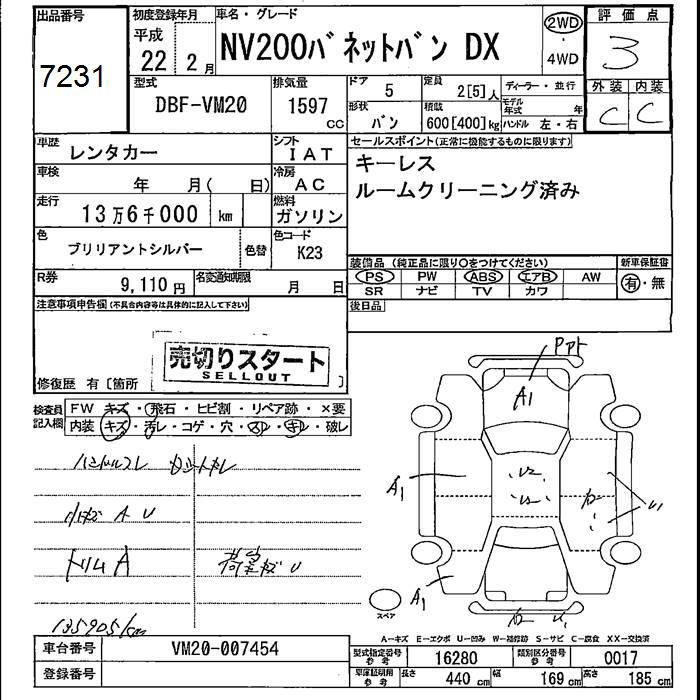 出品番号
7231
初度登録年月
平成
22年 2月
車名・グレード
NV200バネットバン DX
2WD
・
4WD
評価点
3
型式
DBF-VM20
排気量
1597
CC
ドア
5
定員
2[5]人
ディーラー・並行
モデル年式 年
形状
バン
積載
600[400]kg
ハンドル 左・右
外装 内装
C C
車歴
レンタカー
シフト
IAT
セールスポイント(正常に機能するものに限ります)
キーレス
ルームクリーニング済み
車検
年 月( 日)
冷房
AC
走行
13万6千000 km
燃料
ガソリン
色
ブリリアントシルバー
色替
色コード
K23
装備品(純正品に限り○をつけてください)
新車保証書
PS PW ABS エアB AW
SR ナビ TV カワ
有・無
R券
9,110円
名変通知期限
月 日
後日品
注意事項申告欄(不具合内容等は具体的に記入して下さい)
売切りスタート
SELLOUT
修復歴 有〔箇所 〕
検査員
記入欄
FW キズ・飛石・ヒビ割・リペア跡・×要
内装 キズ・汚レ・コゲ・穴・スレ・キレ・破レ
ハンドルスレ
A U
トリムA
荷室キズ U
135905km
Ppt
A1
A1
A1
スペア
A―キズ E―エクボ U―凹み W―補修跡 S―サビ C―腐食 XX―交換済
車台番号
VM20-007454
登録番号
型式指定番号
参考
16280
類別区分番号
参考
0017
車庫証明用
参考
長さ
440cm
幅
169cm
高さ
185cm